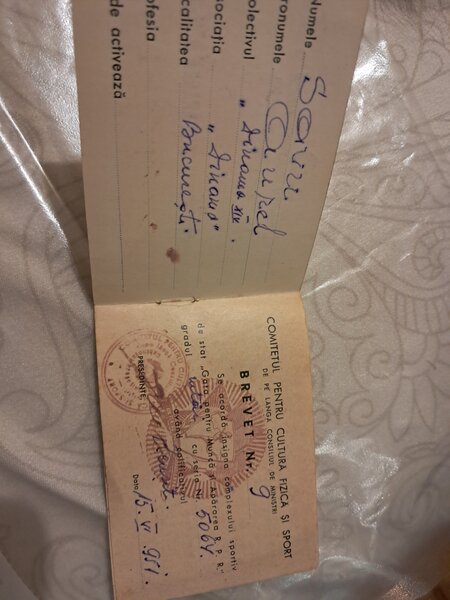 Numele Savu
pronumele Aurel
olectivul „Dinamo XIV".
sociația „Dinamo"
calitatea București.
ofesia
de activează
COMITETUL PENTRU CULTURA FIZICA ȘI SPORT
DE PE LANGA CONSILIUL DE MINISTRI
BREVET Nr. 9
Se acordă insigna complexului sportiv
de stat „Gata pentru Muncă și Apărarea R.P.R."
gradul cu seria Nr. 5064.
având calificativul
PREȘEDINTE,
Data 15. VI 951.